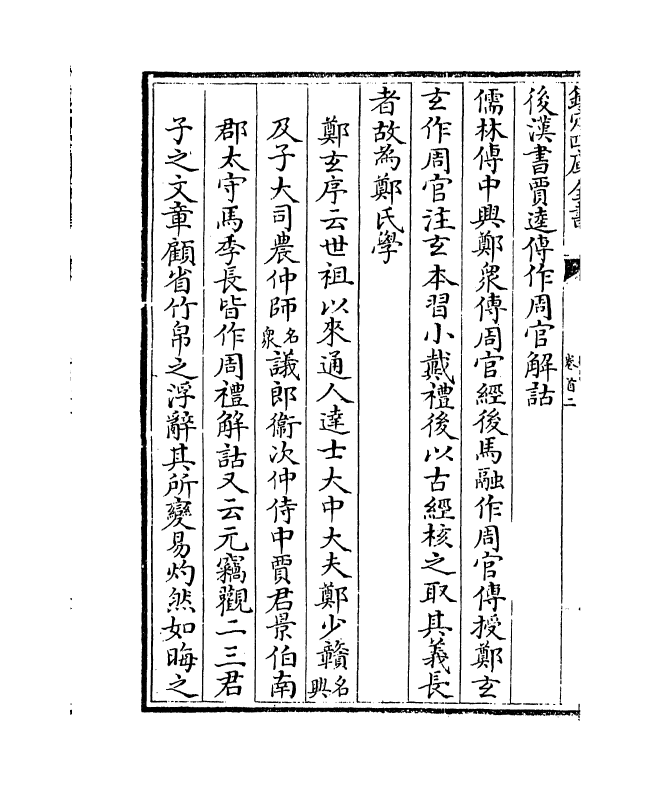 欽定四庫全書
卷首二
後漢書賈逵傳作周官解詁
儒林傳中興鄭衆傳周官經後馬融作周官傳授鄭玄
玄作周官注玄本習小戴禮後以古經核之取其義長
者故為鄭氏學
鄭玄序云世祖以來通人達士大中大夫鄭少贛名興
及子大司農仲師名衆議郎衞次仲侍中賈君景伯南
郡太守馬季長皆作周禮解詁又云元竊觀二三君
子之文章顧省竹帛之浮辭其所變易灼然如晦之